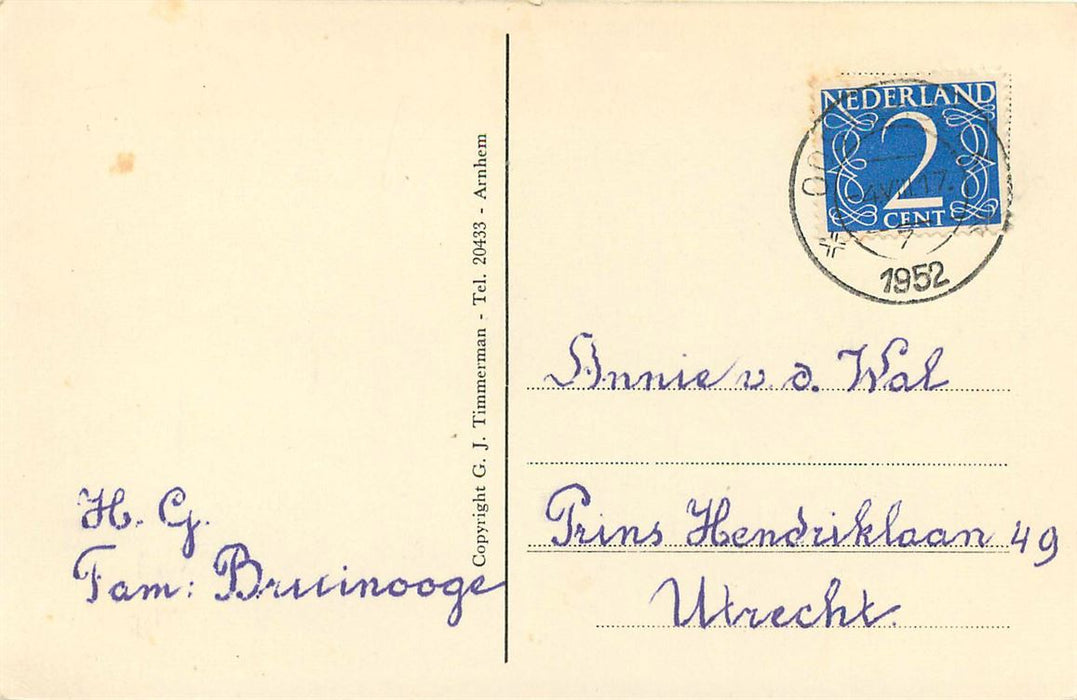 H. G.
Fam: Bruinooge
Copyright G. J. Timmerman - Tel. 20433 - Arnhem
NEDERLAND
2
CENT
1952
Annie v. d. Wal
Prins Hendriklaan 49
Utrecht.